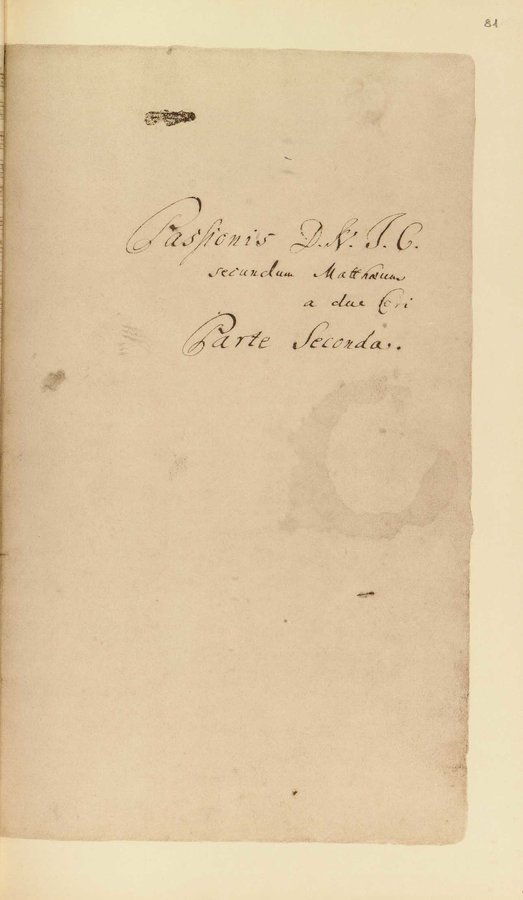 81
Passionis D. N. J. C.
secundum Matthæum
a due Cori
Parte Seconda.